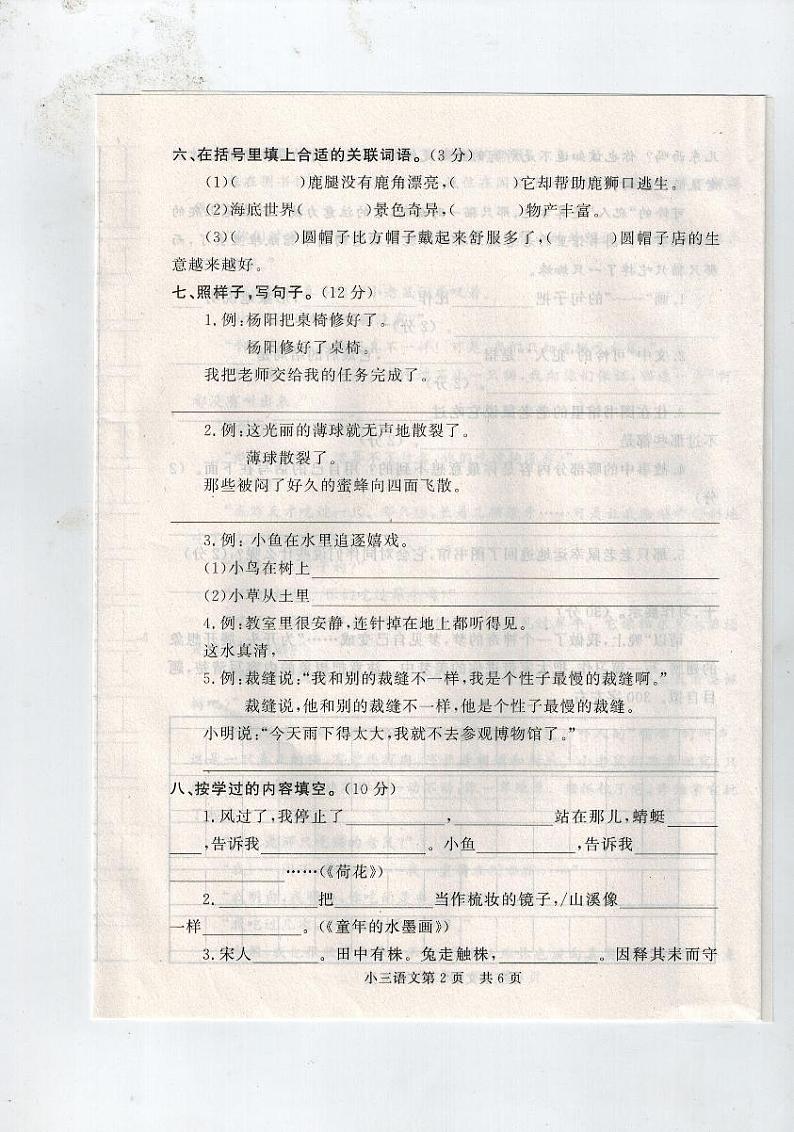 六、在括号里填上合适的关联词语。(3 分)
(1)(　　　)鹿腿没有鹿角漂亮,(　　　)它却帮助鹿狮口逃生。
(2)海底世界(　　　)景色奇异,(　　　)物产丰富。
(3)(　　　)圆帽子比方帽子戴起来舒服多了,(　　　)圆帽子店的生
意越来越好。
七、照样子,写句子。(12 分)
1.例:杨阳把桌椅修好了。
杨阳修好了桌椅。
我把老师交给我的任务完成了。
2.例:这光丽的薄球就无声地散裂了。
薄球散裂了。
那些被闷了好久的蜜蜂向四面飞散。
3.例:小鱼在水里追逐嬉戏。
(1)小鸟在树上
(2)小草从土里
4.例:教室里很安静,连针掉在地上都听得见。
这水真清,
5.例:裁缝说:“我和别的裁缝不一样,我是个性子最慢的裁缝啊。”
裁缝说,他和别的裁缝不一样,他是个性子最慢的裁缝。
小明说:“今天雨下得太大,我就不去参观博物馆了。”
八、按学过的内容填空。(10 分)
1.风过了,我停止了________,________站在那儿,蜻蜓____
____,告诉我________。小鱼________,告诉我____
________……(《荷花》)
2.________把________当作梳妆的镜子,/山溪像________
一样________。(《童年的水墨画》)
3.宋人______。田中有株。兔走触株,________。因释其耒而守
小三语文第 2 页　共 6 页